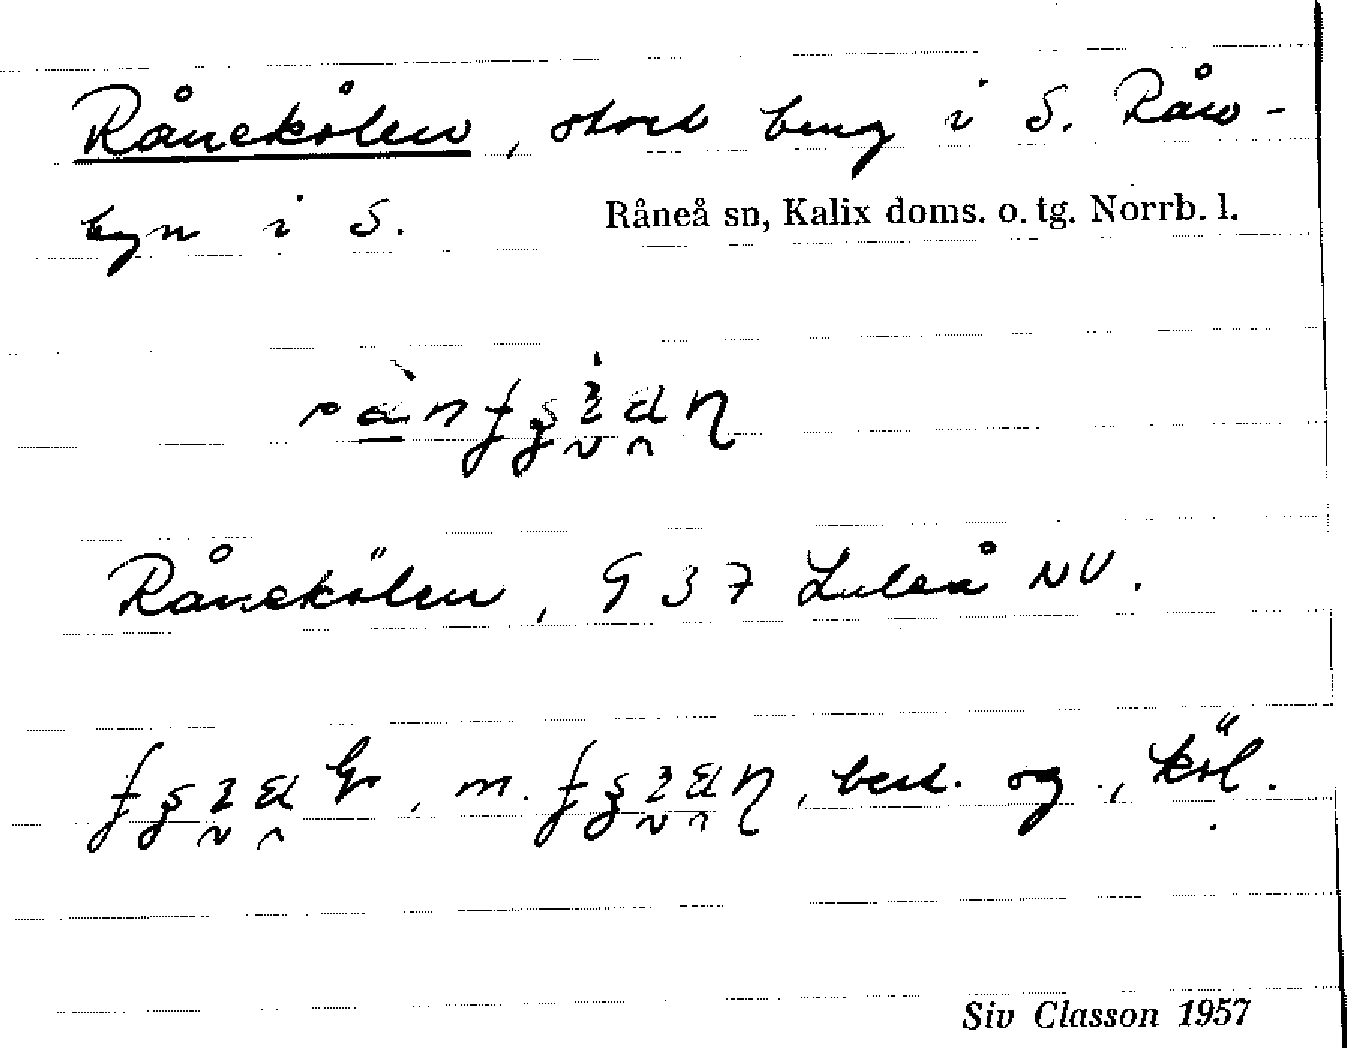 Rånekölen, stort berg i S. Rån-
byn i S. Råneå sn, Kalix doms. o. tg. Norrb. l.
Rånekölen, 9 37 Luleå NV.
m. best. og., köl.
Siv Classon 1957